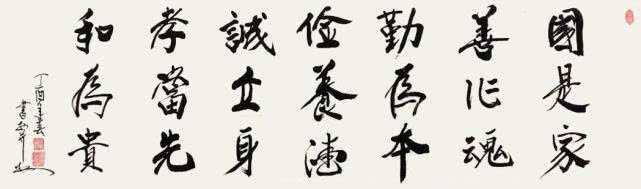 國是家
善作魂
勤為本
儉養德
誠立身
孝當先
和為貴
丁酉